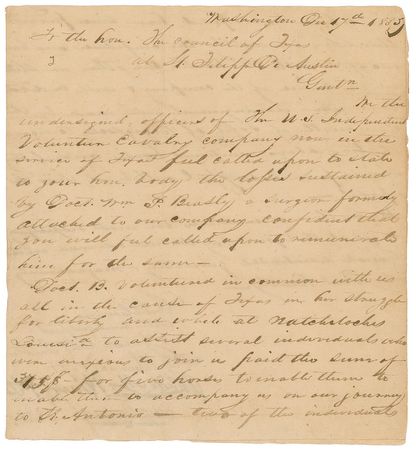 Washington Dec 17th 1835
To the hon. The council of Texas
at St. Felipp De Austin
Gentn
We the
undersigned, officers of the U.S. Independent
Volunteer Cavalry company now in the
service of Texas feel called upon to state
to your hon. body the losses sustained
by Doct. Wm P. a surgeon formerly
attached to our company confident that
you will feel called upon to remunerate
him for the same—
Doct. B. Voluntered in common with us
all in the cause of Texas in her struggle
for liberty and while at Natchitoches
Louisi to assist several individuals who
were anxious to join us paid the sum of
for five horses to enable them to
enable them to accompany us on our journey
to St. Antonio — two of the individuals